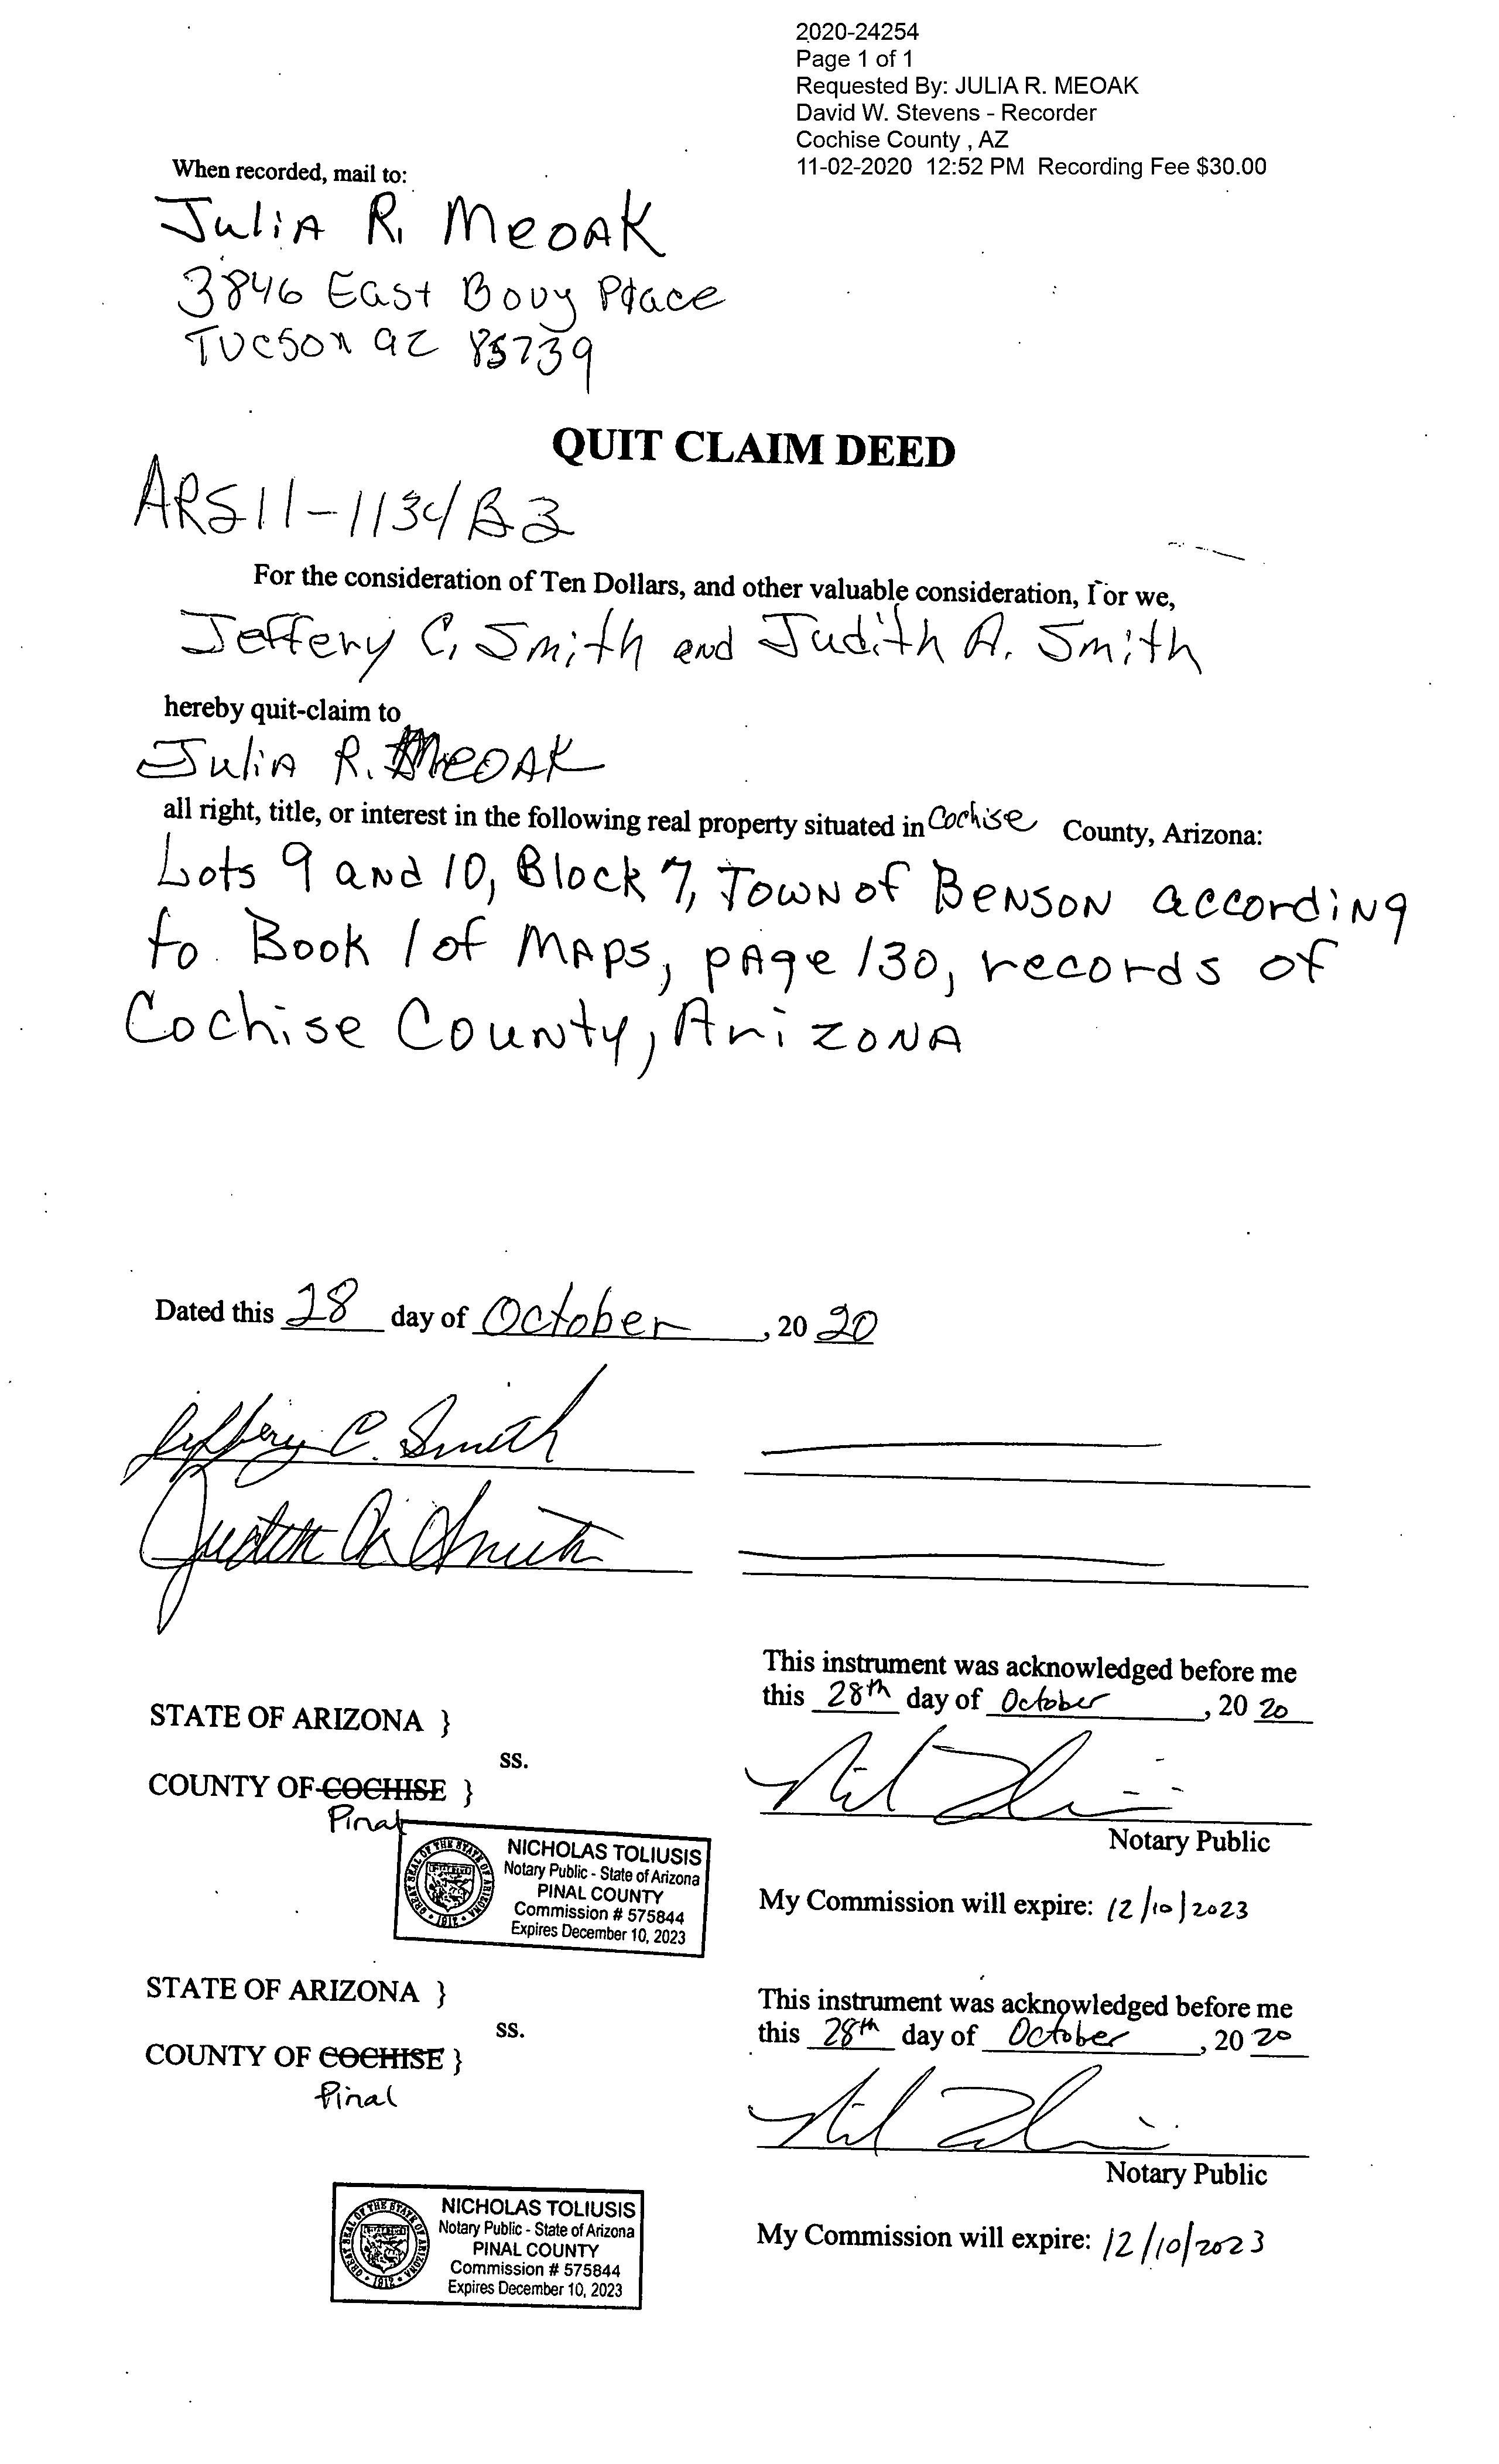 2020-24254
Page 1 of 1
Requested By: JULIA R. MEOAK
David W. Stevens - Recorder
Cochise County , AZ
11-02-2020 12:52 PM Recording Fee $30.00
When recorded, mail to:
Julia R. Meoak
3846 East Bovy Place
Tucson az 85739
QUIT CLAIM DEED
ARS 11-1134 B3
For the consideration of Ten Dollars, and other valuable consideration, I or we,
Jeffery C. Smith and Judith A. Smith
hereby quit-claim to
Julia R. Meoak
all right, title, or interest in the following real property situated in Cochise County, Arizona:
Lots 9 and 10, Block 7, Town of Benson according
to Book 1 of Maps, page 130, records of
Cochise County, Arizona
Dated this 28 day of October, 20 20
Jeffery C. Smith
Judith A. Smith
This instrument was acknowledged before me
this 28th day of October, 20 20
STATE OF ARIZONA }
ss.
COUNTY OF COCHISE }
Pinal
Notary Public
NICHOLAS TOLIUSIS
Notary Public - State of Arizona
PINAL COUNTY
Commission # 575844
Expires December 10, 2023
GREAT SEAL OF THE STATE OF ARIZONA
1912
My Commission will expire: 12/10/2023
STATE OF ARIZONA }
ss.
COUNTY OF COCHISE }
Pinal
This instrument was acknowledged before me
this 28th day of October, 20 20
Notary Public
NICHOLAS TOLIUSIS
Notary Public - State of Arizona
PINAL COUNTY
Commission # 575844
Expires December 10, 2023
GREAT SEAL OF THE STATE OF ARIZONA
1912
My Commission will expire: 12/10/2023